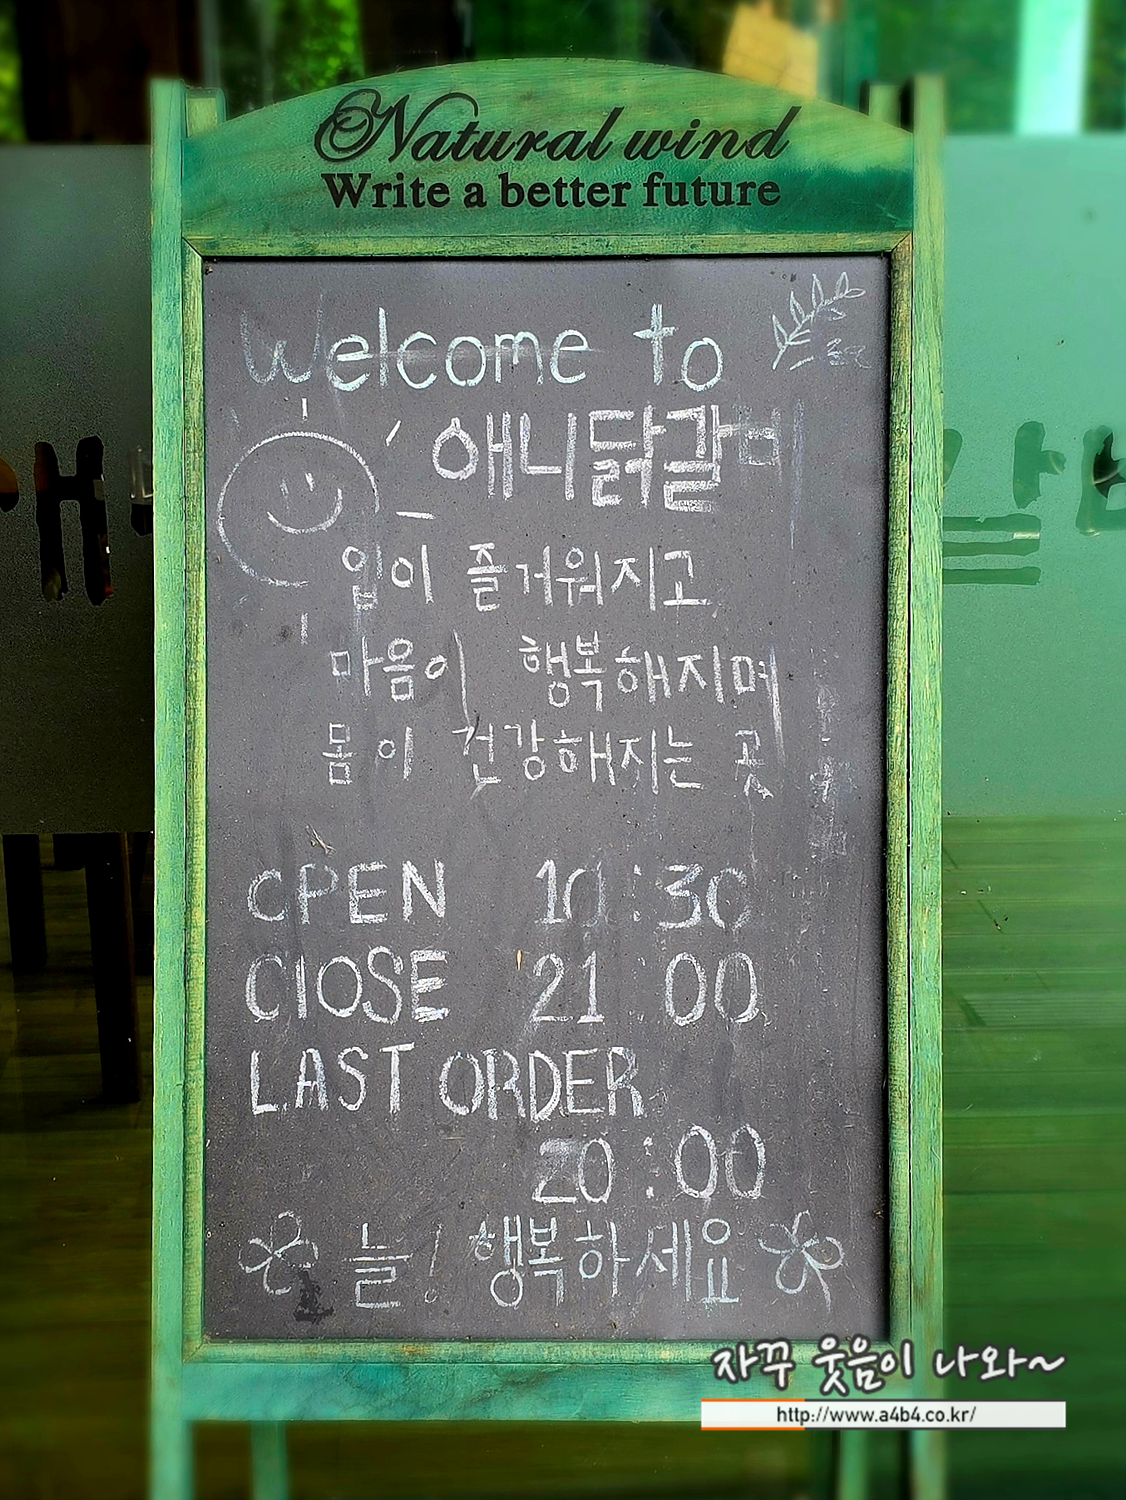 Natural wind
Write a better future
Welcome to
애니닭갈비
입이 즐거워지고
마음이 행복해지며
몸이 건강해지는 곳
OPEN 10:30
ClOSE 21 00
LAST ORDER
20:00
늘! 행복하세요
자꾸 웃음이 나와~
http://www.a4b4.co.kr/